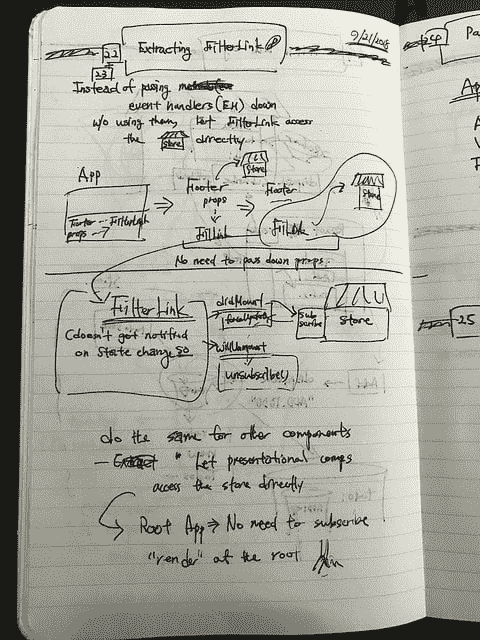 22
Extracting FilterLink
9/21/2018
23
Instead of passing
event handlers (EH) down
w/o using them, let FilterLink access
the store directly
App
Footer
props
FilterLink
Footer
props
FilLink
Store
Footer
FilLink
Store
No need to pass down props
FilterLink
(doesn't get notified
on State change so
didMount
forceUpdate
Sub
scribe
Store
willUnmount
unsubscribe()
do the same for other components
— " Let presentational comps
access the store directly
Root App → No need to subscribe
"render" at the root
24
Pa
25